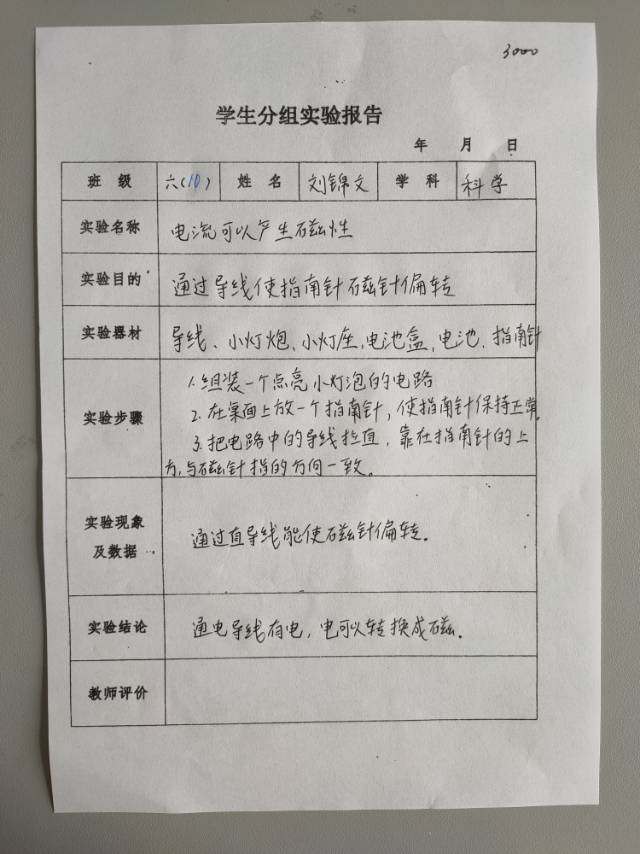 3000
学生分组实验报告
年 月 日
班 级 六(10) 姓 名 刘锦文 学 科 科学
实验名称 电流可以产生磁性
实验目的 通过导线使指南针磁针偏转
实验器材 导线、小灯炮、小灯座、电池盒、电池、指南针
实验步骤
1.组装一个点亮小灯泡的电路
2.在桌面上放一个指南针,使指南针保持正常。
3.把电路中的导线拉直,靠在指南针的上
方,与磁针指的方向一致。
实验现象
及数据
通过直导线能使磁针偏转。
实验结论 通电导线有电,电可以转换成磁。
教师评价